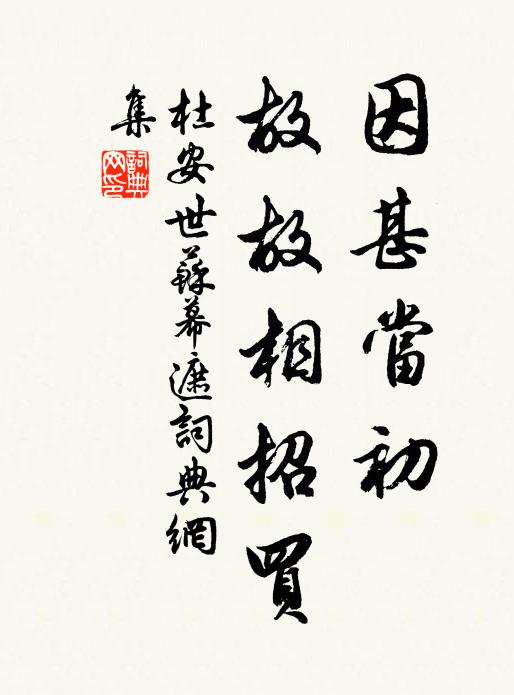 因甚當初
故故相招買
杜安世蘇幕遮詞典網
集
詞典網印